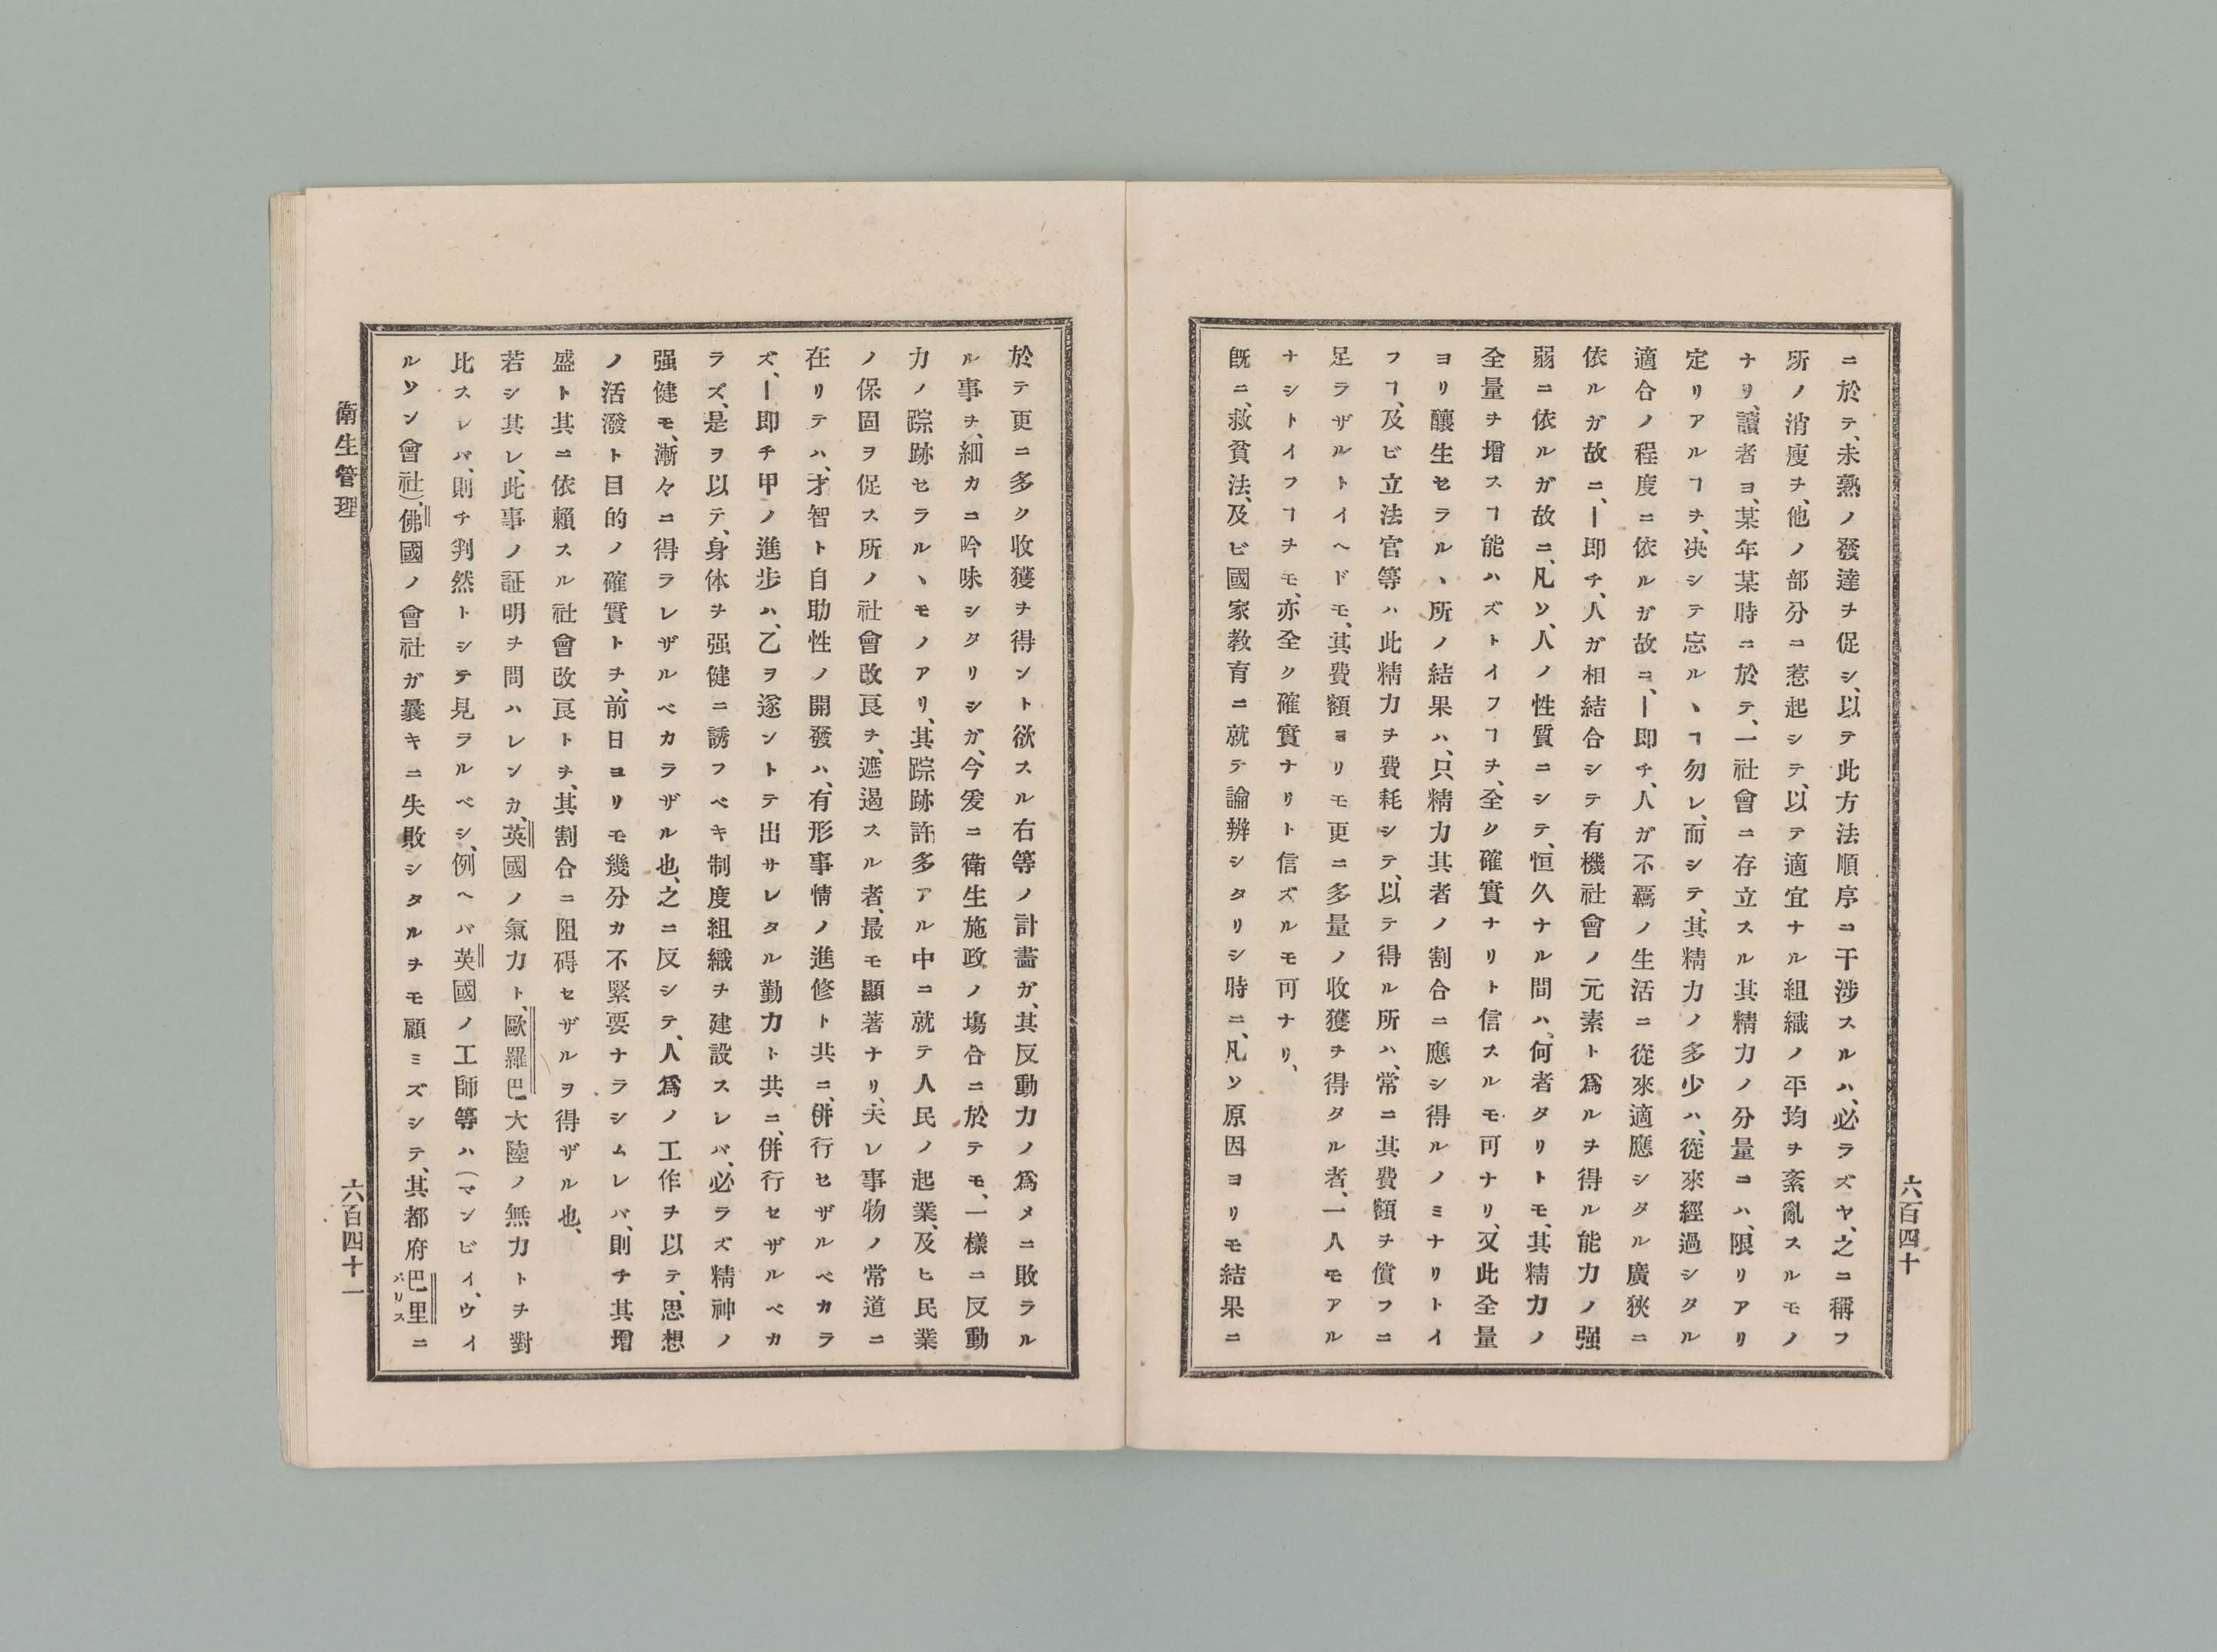 ニ於テ、未熟ノ發達ヲ促シ、以テ此方法順序ニ干渉スルハ、必ラズヤ、之ニ稱フ
所ノ消瘦ヲ、他ノ部分ニ惹起シテ、以テ適宜ナル組織ノ平均ヲ紊亂スルモノ
ナリ、讀者ヨ、某年某時ニ於テ、一社會ニ存立スル其精力ノ分量ニハ、限リアリ
定リアルヿヲ、决シテ忘ルヽヿ勿レ、而シテ、其精力ノ多少ハ、從來經過シタル
適合ノ程度ニ依ルガ故ニ、ー即チ、人ガ不羈ノ生活ニ從來適應シタル廣狹ニ
依ルガ故ニ、ー即チ、人ガ相結合シテ有機社會ノ元素ト爲ルヲ得ル能力ノ强
弱ニ依ルガ故ニ、凡ソ、人ノ性質ニシテ、恒久ナル間ハ、何者タリトモ、其精力ノ
全量ヲ增スヿ能ハズトイフヿヲ、全ク確實ナリト信スルモ可ナリ、又此全量
ヨリ釀生セラルヽ所ノ結果ハ、只精力其者ノ割合ニ應シ得ルノミナリトイ
フヿ、及ビ立法官等ハ此精力ヲ費耗シテ、以テ得ル所ハ、常ニ其費額ヲ償フニ
足ラザルトイヘドモ、其費額ヨリモ更ニ多量ノ收獲ヲ得タル者、一人モアル
ナシトイフヿヲモ、亦全ク確實ナリト信ズルモ可ナリ、
既ニ、救貧法、及ビ國家敎育ニ就テ論辨シタリシ時ニ、凡ソ原因ヨリモ結果ニ
六百四十
於テ更ニ多ク收獲ヲ得ント欲スル右等ノ計畵ガ、其反動力ノ爲メニ敗ラル
ル事ヲ、細カニ吟味シタリシガ、今爰ニ衛生施政ノ塲合ニ於テモ、一樣ニ反動
力ノ踪跡セラルヽモノアリ、其踪跡許多アル中ニ就テ人民ノ起業、及ヒ民業
ノ保固ヲ促ス所ノ社會改良ヲ、遮遏スル者、最モ顯著ナリ、夫レ事物ノ常道ニ
在リテハ、才智ト自助性ノ開發ハ、有形事情ノ進修ト共ニ、併行セザルベカラ
ズ、ー即チ甲ノ進步ハ、乙ヲ遂ントテ出サレタル勤力ト共ニ、併行セザルベカ
ラズ、是ヲ以テ、身体ヲ强健ニ誘フベキ制度組織ヲ建設スレバ、必ラズ精神ノ
强健モ、漸々ニ得ラレザルベカラザル也、之ニ反シテ、人爲ノ工作ヲ以テ、思想
ノ活潑ト目的ノ確實トヲ、前日ヨリモ幾分カ不緊要ナラシムレバ、則チ其增
盛ト其ニ依賴スル社會改良トヲ、其割合ニ阻碍セザルヲ得ザル也、
若シ其レ、此事ノ証明ヲ問ハレンカ、英國ノ氣力ト、歐羅巴大陸ノ無力トヲ對
比スレバ、則チ判然トシテ見ラルベシ、例ヘバ英國ノ工師等ハ(マンビイ、ウイ
ルソン會社)、佛國ノ會社ガ曩キニ失敗シタルヲモ顧ミズシテ、其都府巴里ニ
パリス
衛生管理
六百四十一